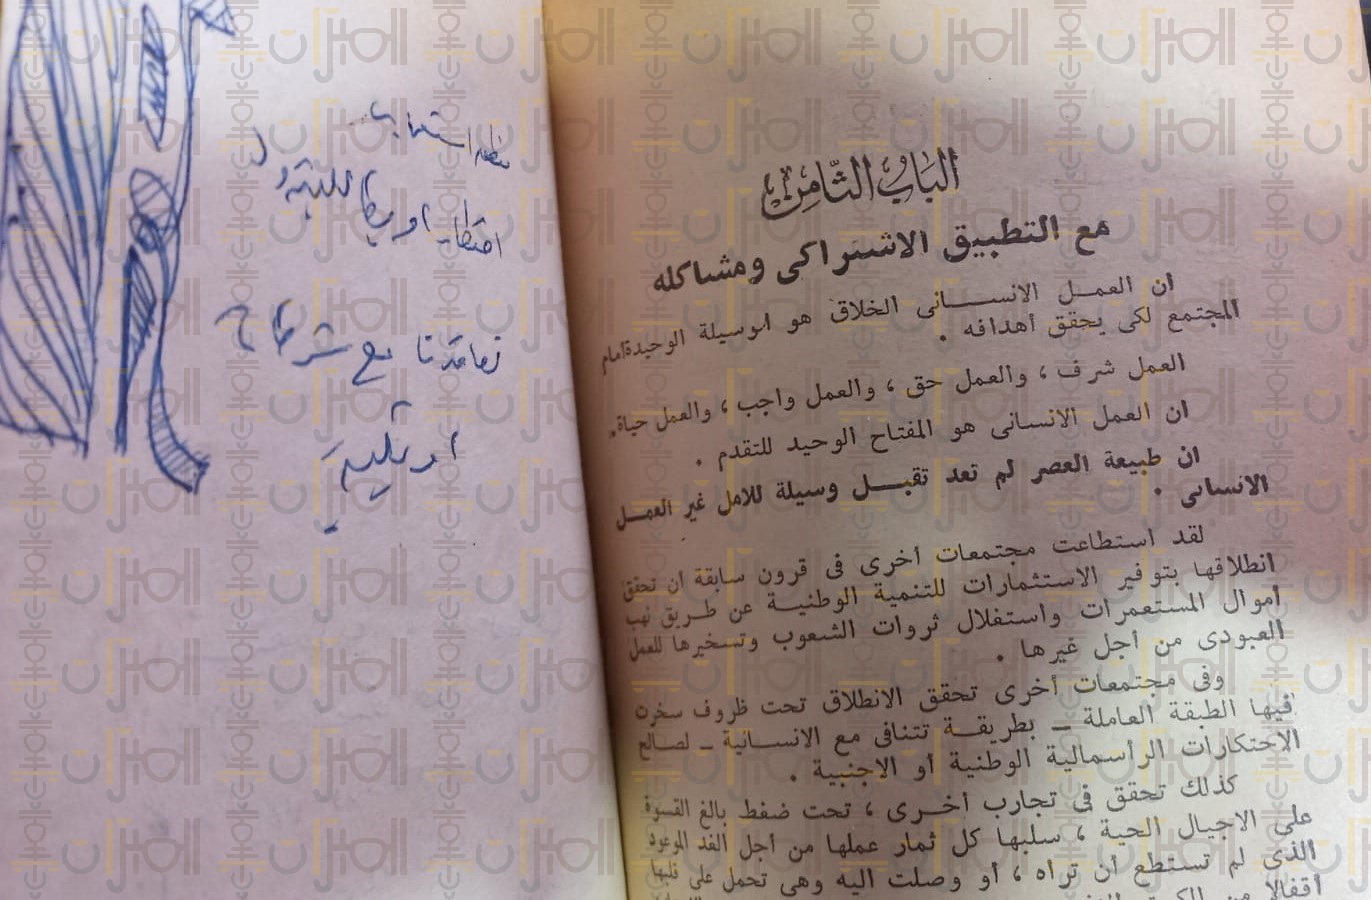 الباب الثامن
مع التطبيق الاشتراكى ومشاكله
ان العمل الانسانى الخلاق هو الوسيلة الوحيدة أمام
المجتمع لكى يحقق أهدافه .
العمل شرف ، والعمل حق ، والعمل واجب ، والعمل حياة .
ان العمل الانسانى هو المفتاح الوحيد للتقدم .
ان طبيعة العصر لم تعد تقبل وسيلة للامل غير العمل
الانسانى .
لقد استطاعت مجتمعات أخرى فى قرون سابقة أن تحقق
انطلاقها بتوفير الاستثمارات للتنمية الوطنية عن طريق نهب
أموال المستعمرات واستغلال ثروات الشعوب وتسخيرها للعمل
العبودى من أجل غيرها .
وفى مجتمعات أخرى تحقق الانطلاق تحت ظروف سخرت
فيها الطبقة العاملة ــ بطريقة تتنافى مع الانسانية ــ لصالح
الاحتكارات الرأسمالية الوطنية أو الاجنبية .
كذلك تحقق فى تجارب أخرى ، تحت ضغط بالغ القسوة
على الاجيال الحية ، سلبها كل ثمار عملها من أجل الغد الموعود
الذى لم تستطع أن تراه ، أو وصلت اليه وهى تحمل على قلبها
أقفالا من
احتكار اوبك للبترول
تعاقدنا مع شركات